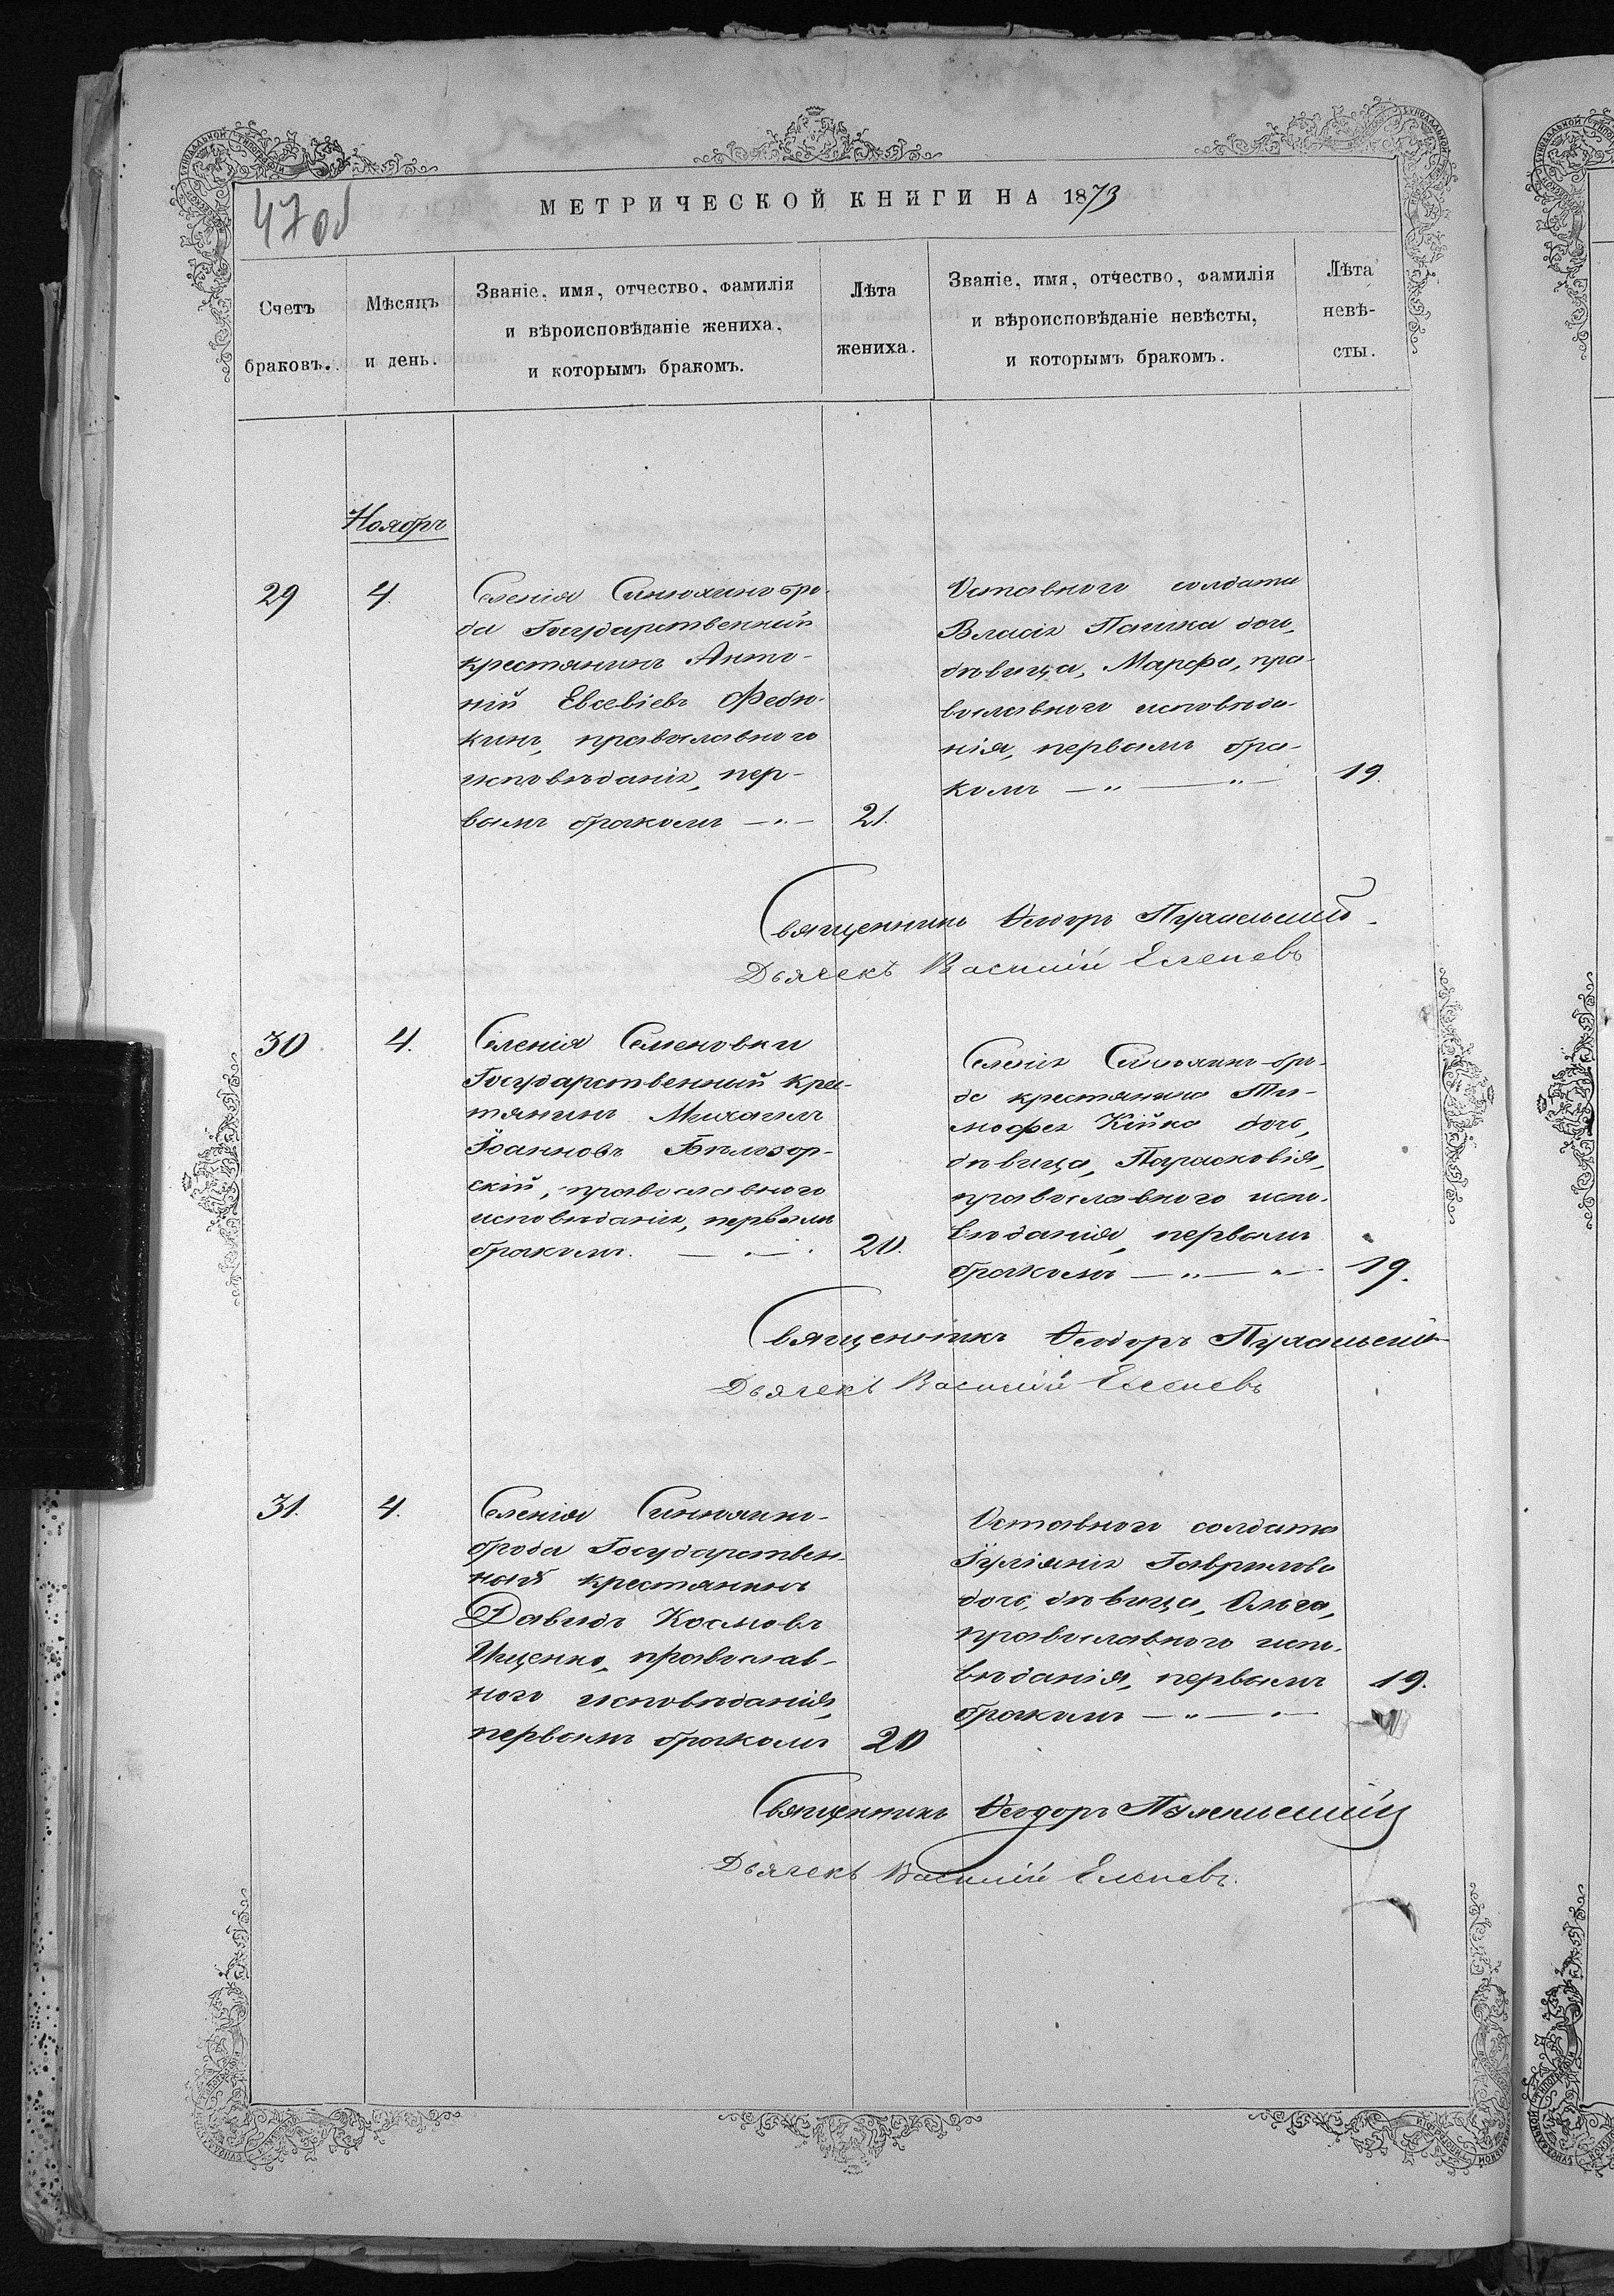 47 об
МЕТРИЧЕСКОЙ КНИГИ НА 1873
Счетъ
браковъ.
Мѣсяцъ
и день.
Званіе, имя, отчество, фамилія
и вѣроисповѣданіе жениха,
и которымъ бракомъ.
Лѣта
жениха.
Званіе, имя, отчество, фамилія
и вѣроисповѣданіе невѣсты,
и которымъ бракомъ.
Лѣта
невѣ-
сты.
Ноябрь
29
4.
Селенія Синюхино бро-
да Государственный
крестьянинъ Анто-
ній Евсевіевъ Федю-
кинъ, православнаго
исповѣданія, пер-
вымъ бракомъ —„—
21.
Отставного солдата
Власія дочь,
дѣвица, Марфа, пра-
вославнаго исповѣда-
нія, первымъ бра-
комъ —„— —„—
19.
Священникъ Ѳеодоръ
Дьячекъ Василій
30
4.
Селенія Семеновки
Государственный крес-
тянинъ Михаилъ
Іоанновъ Бѣлозор-
скій, православнаго
исповѣданія, первымъ
бракомъ. —„—.
20.
Селенія Синюхино-бро-
да крестьянина Ти-
мофея Кійка дочь,
дѣвица, Парасковія,
православнаго испо-
вѣданія, первымъ
бракомъ —„—„—
19.
Священникъ Ѳеодоръ
Дьячекъ Василій
31.
4.
Селенія Синюхино-
брода Государствен-
ный крестьянинъ
Давидъ Космовъ
Ищенко, православ-
ного исповѣданія,
первымъ бракомъ
20
Отставного солдата
Іуліанія Гаврилова
дочь, дѣвица, Ольга,
православнаго испо-
вѣданія, первымъ
бракомъ —„—„—
19.
Священникъ Ѳеодоръ
Дьячекъ Василій